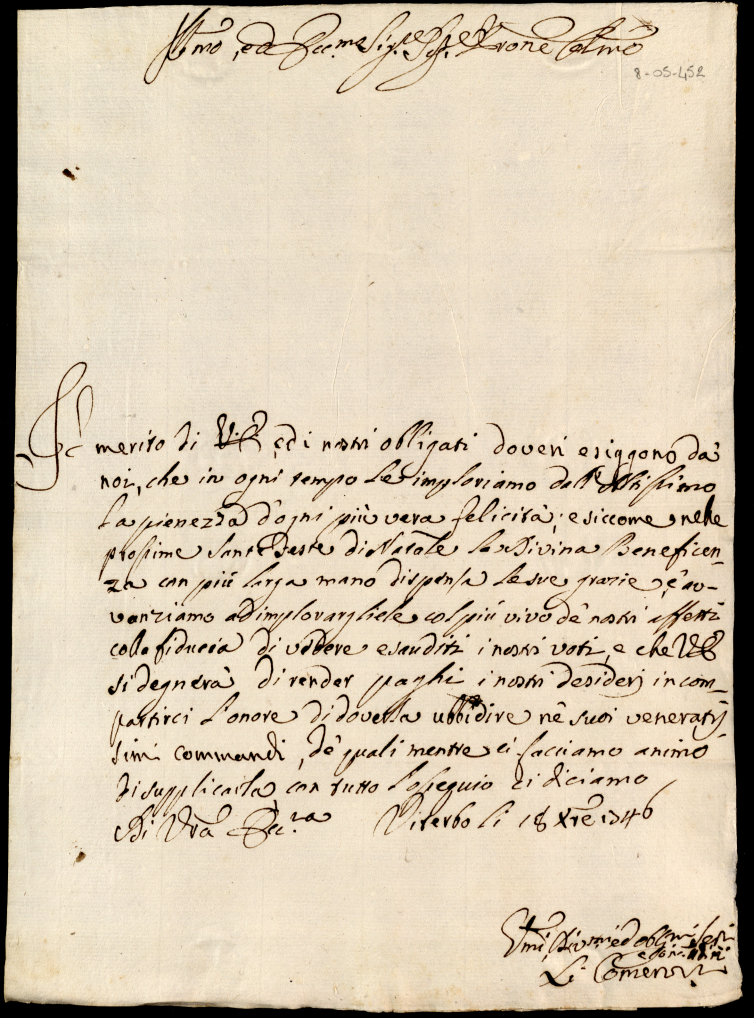 Illmo, ed Eccmo Sigre Sigre e Prone Colmo
8-05-452
Il merito di V.E., ed i nostri obligati doveri esiggono da
noi, che in ogni tempo Le imploriamo dall'Altissimo
la pienezza d'ogni più vera felicità; e siccome nelle
prossime Sante Feste di Natale la Divina Beneficen-
za con più larga mano dispensa le sue grazie, ci av-
vanziamo ad implorargliele col più vivo de nostri affetti
colla fiducia di vedere esauditi i nostri voti, e che V.E.
si degnerà di render paghi i nostri desiderj in com-
partirci l'onore di doverla ubbidire ne suoi veneratis-
simi commandi, de quali mentre ci facciamo animo
di supplicarla con tutto l'ossequio ci diciamo
Di Vra Ecc.za Viterbo li 18 Xre 1746
Umi, Divmi ed oblmi Seri
Li Conserri